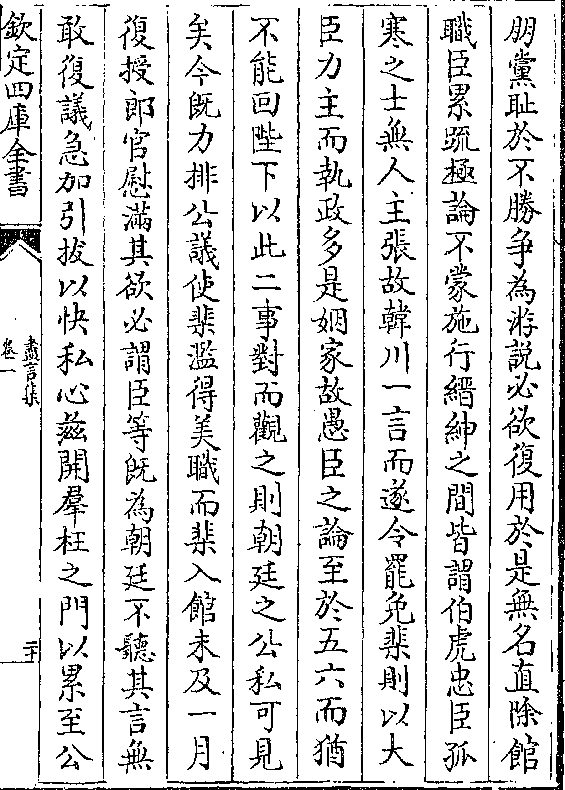 朋黨耻於不勝争為游說必欲復用於是無名直除館
職臣累疏極論不蒙施行縉紳之間皆謂伯虎忠臣孤
寒之士無人主張故韓川一言而遂令罷免棐則以大
臣力主而執政多是姻家故愚臣之論至於五六而猶
不能回陛下以此二事對而觀之則朝廷之公私可見
矣今既力排公議使棐濫得美職而棐入館未及一月
復授郎官慰滿其欲必謂臣等既為朝廷不聽其言無
敢復議急加引拔以快私心兹開羣枉之門以累至公
欽定四庫全書
盡言集
卷一
二十